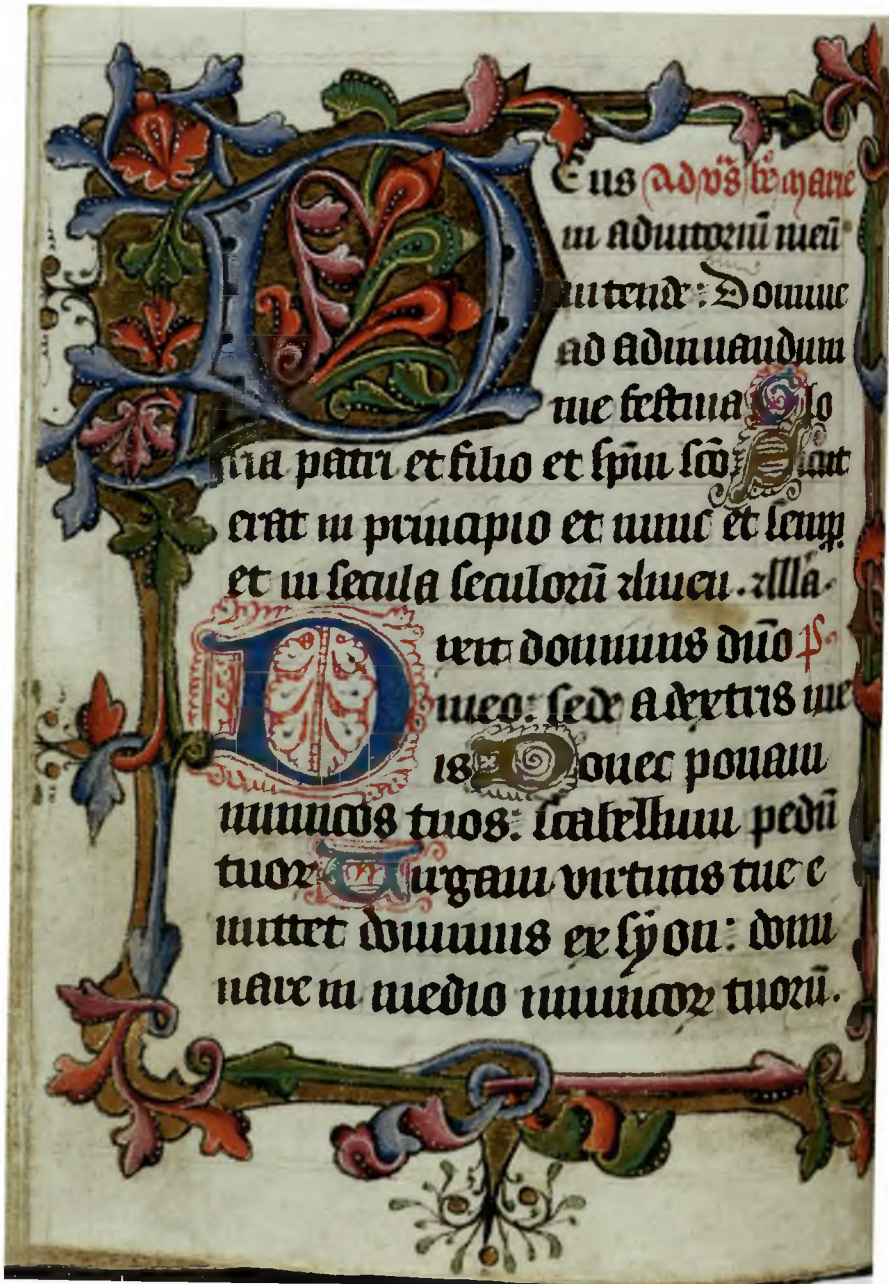 Deus Ad vr̃s bt̃e marie
in adiutoriũ meũ
intende : Domine
ad adiuuandum
me festina Glo
ria patri et filio et sp̄ui sc̄o: Sicut
erat in principio et nunc et semꝑ
et in secula seculorũ amen. Alla.
Dixit dominus dn̄o p̄s
meo: sede a dextris me
is Donec ponam
inimicos tuos: scabellum pedũ
tuoꝝ Uirgam virtutis tue e
mittet dominus ex syon: domi
nare in medio inimicoꝝ tuorũ.